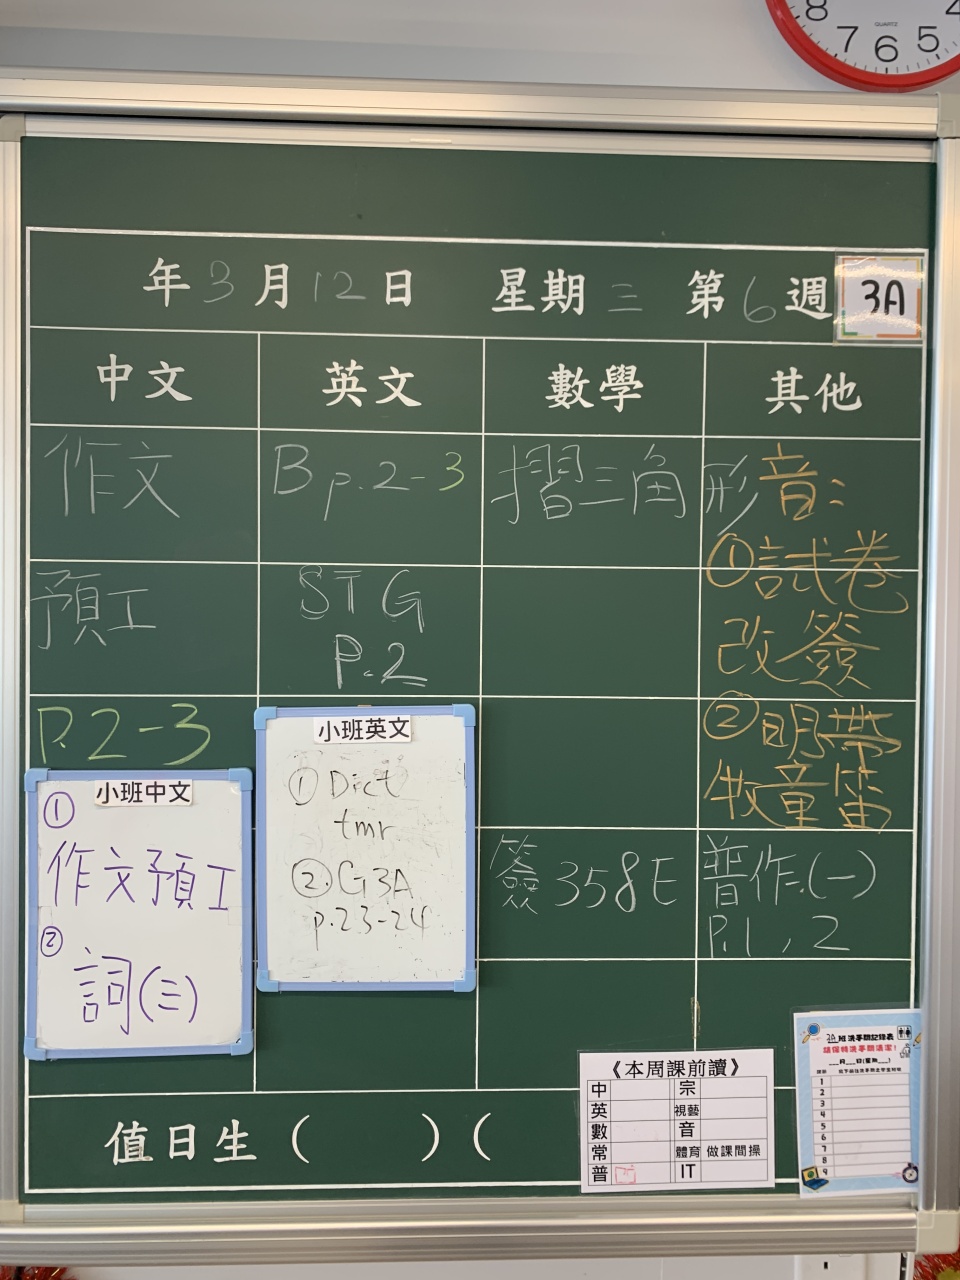 8 7 6 5 4
QUARTZ
年 3 月 12 日 星期 三 第 6 週
3A
中文 英文 數學 其他
作文
預工
P.2-3
B p.2-3
STG
P.2
摺三角形
簽 358E
音:
①試卷
改簽
②明帶
牧童笛
普作.(一)
P.1, 2
小班中文
①
作文預工
②
詞(三)
小班英文
① Dict
tmr.
②. G3A
p.23-24
值日生 ( ) (
《本周課前讀》
中 宗
英 視藝
數 音
常 體育 做課間操
普 IT
3A 班洗手間記錄表
請保持洗手間清潔!
1
2
3
4
5
6
7
8
9